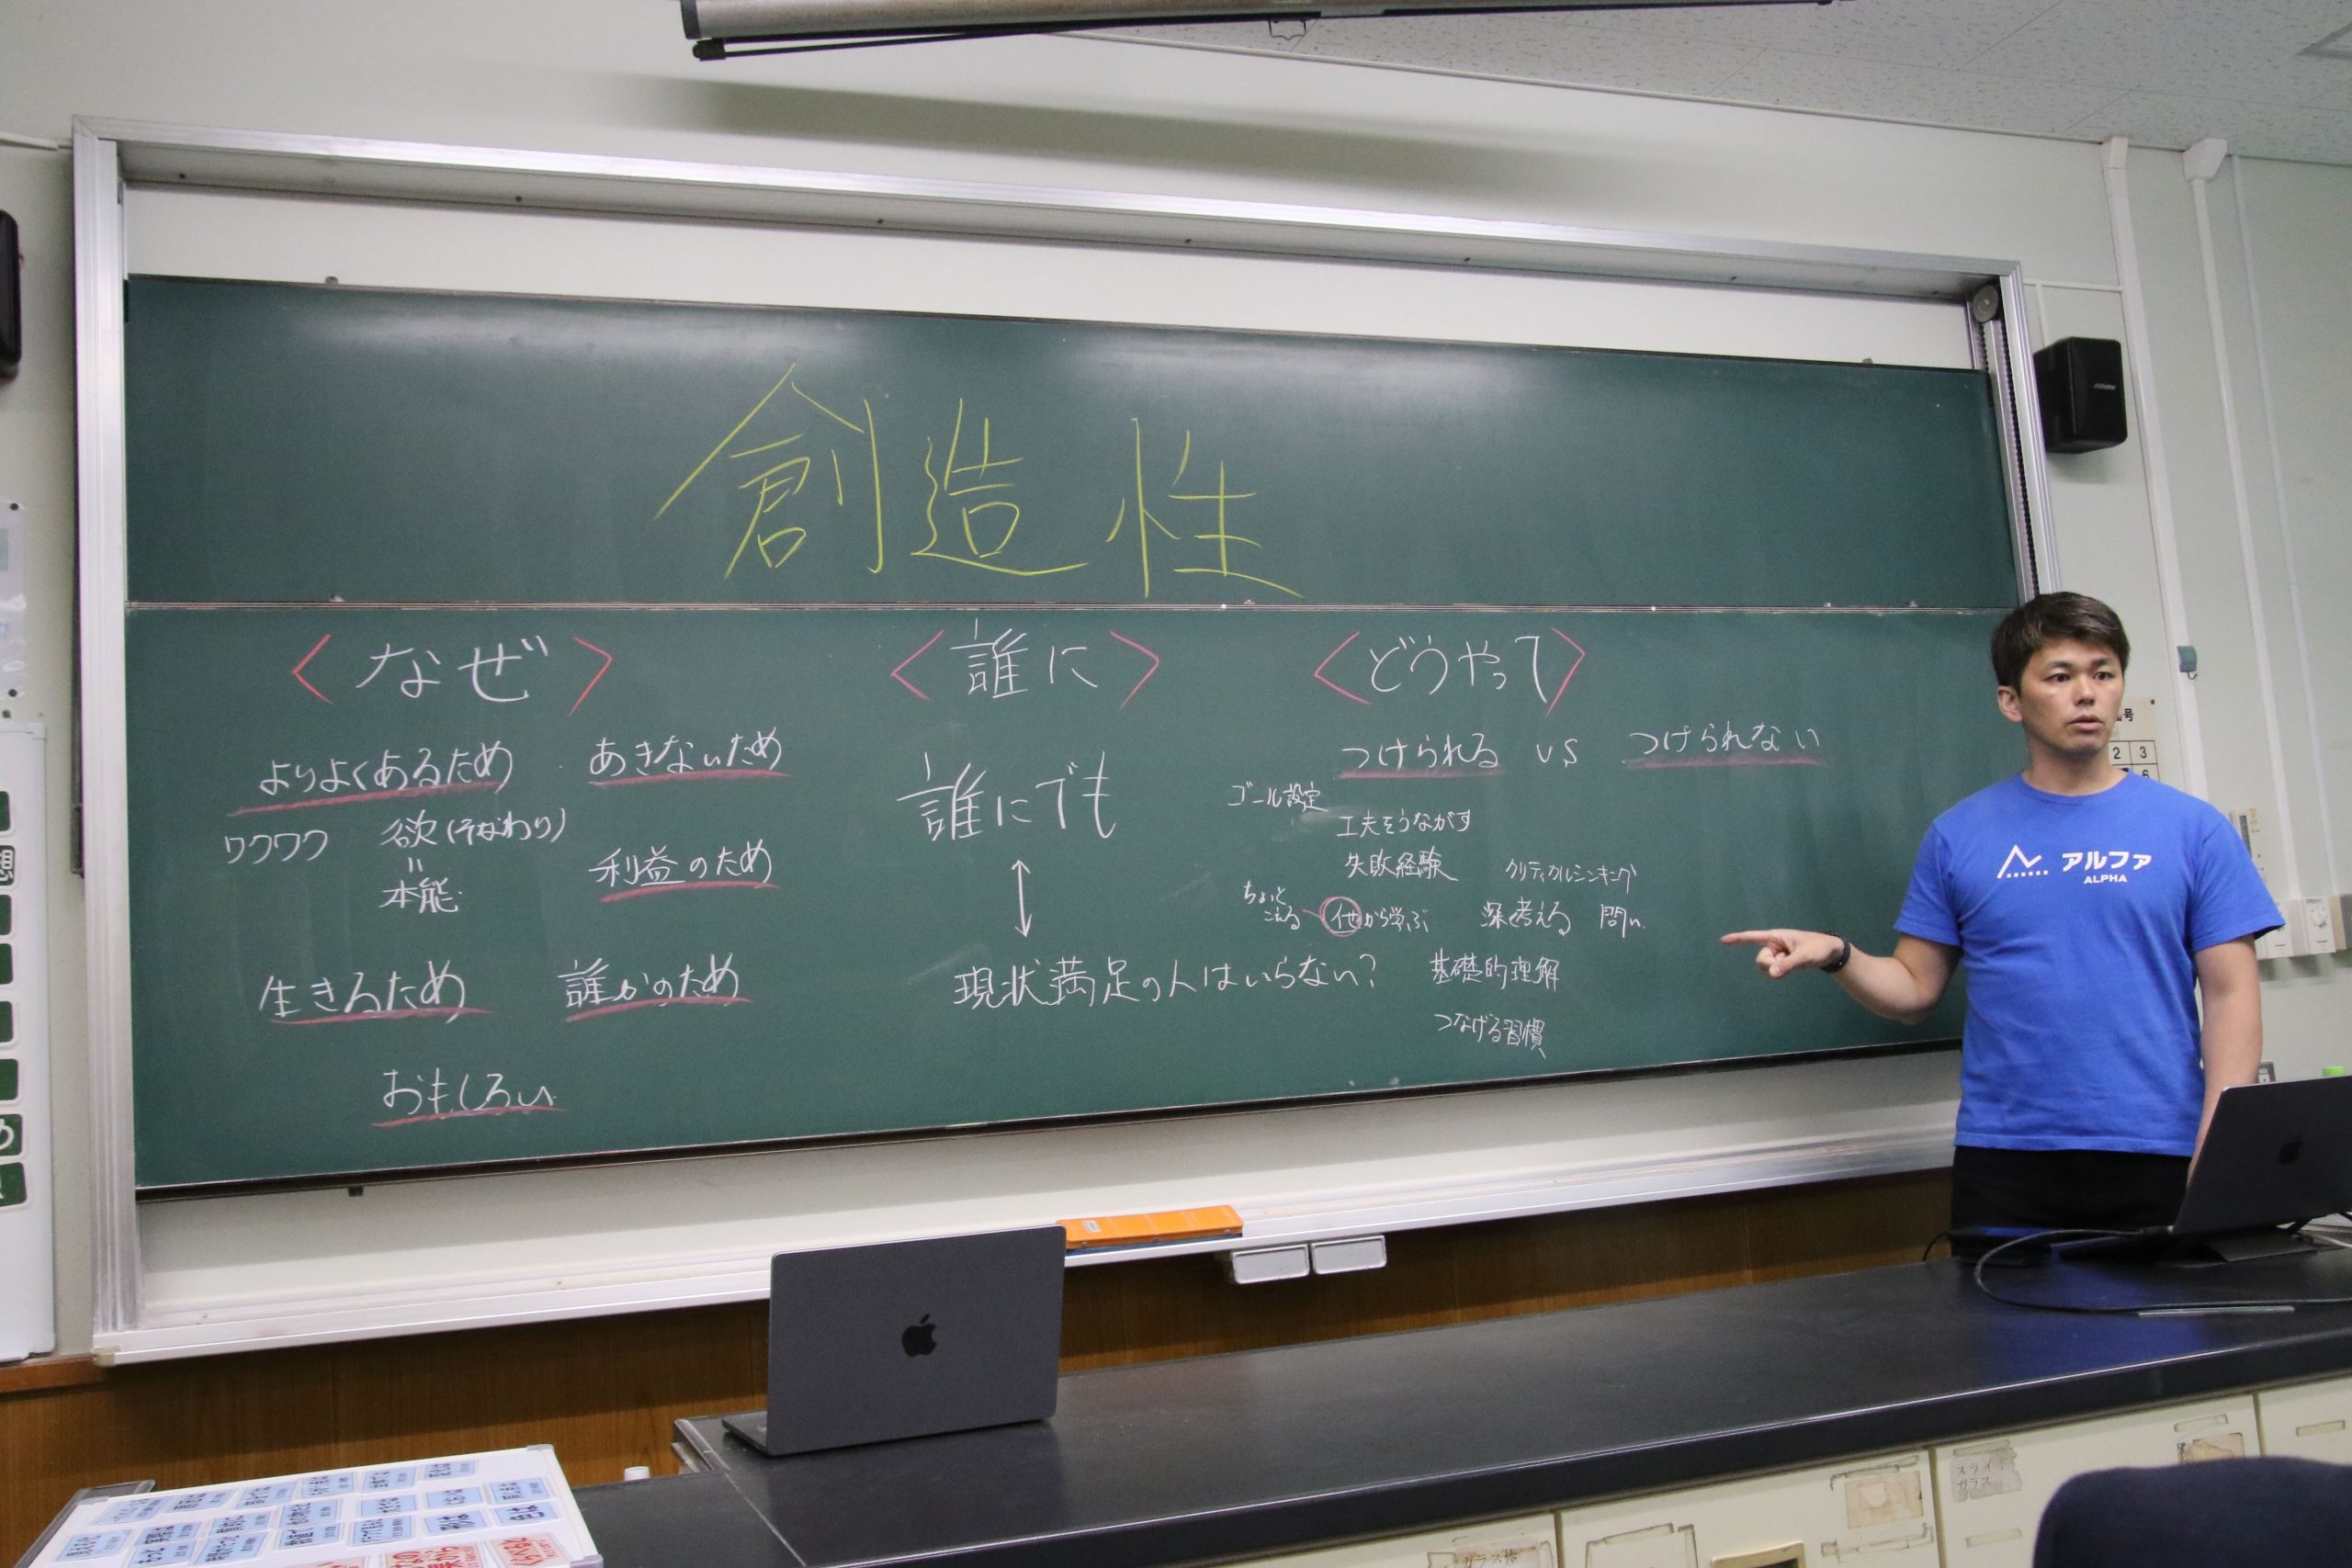 創造性
〈なぜ〉
よりよくあるため
あきないため
ワクワク
欲(そなわり)
〃
本能
利益のため
生きるため
誰かのため
おもしろい
〈誰に〉
誰にでも
現状満足の人はいらない?
〈どうやって〉
つけられる vs つけられない
ゴール設定
工夫をうながす
失敗経験
クリティカルシンキング
ちょっと
こえる
他から学ぶ
深考える 問い
基礎的理解
つなげる習慣
アルファ
ALPHA
号
2 3
6
想
め
スライド
ガラス
ガラス棒